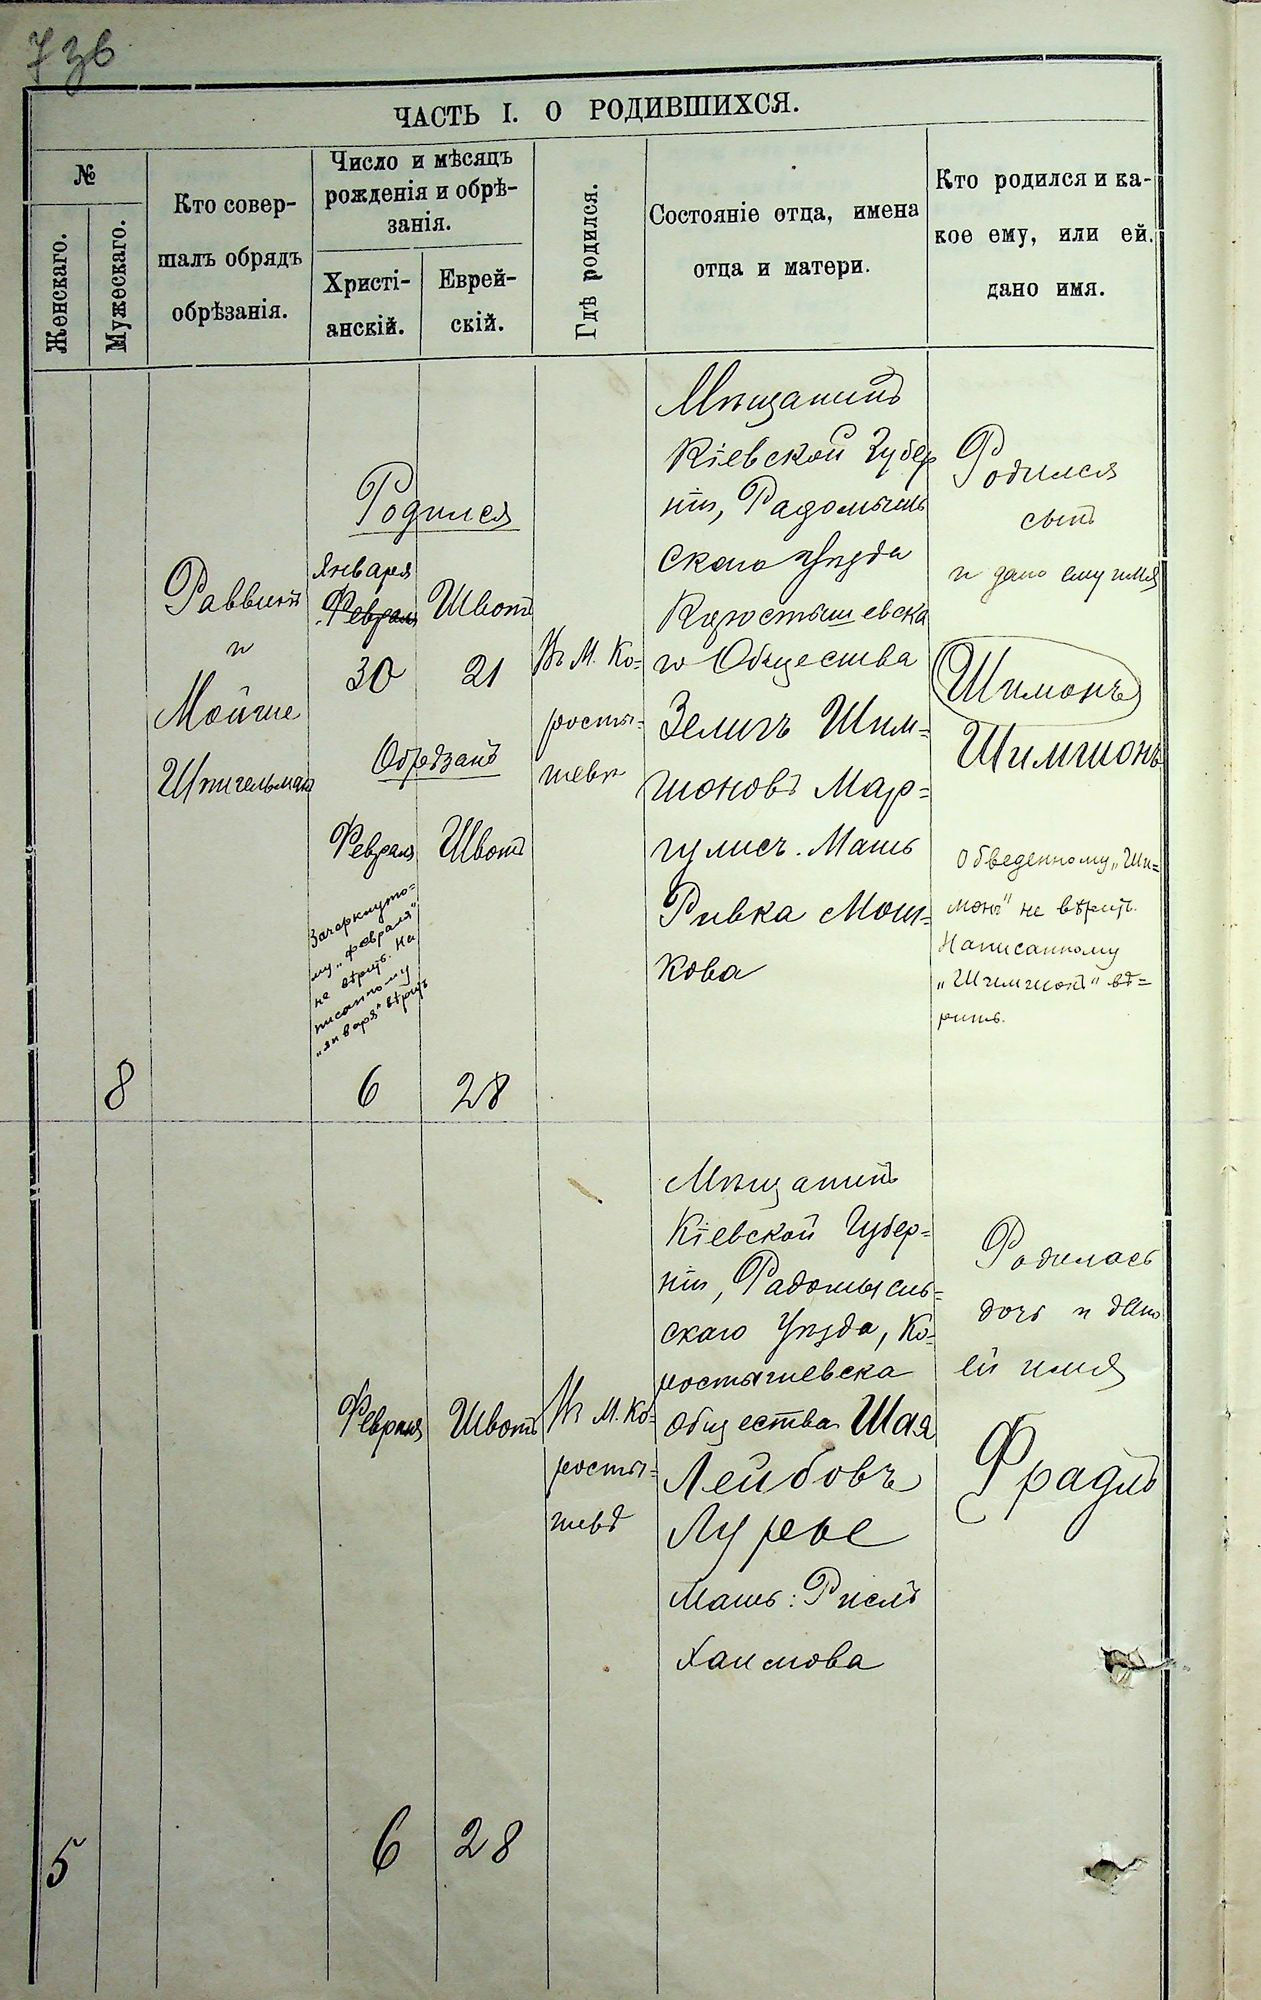 7 зв
ЧАСТЬ I. О РОДИВШИХСЯ.
№
Женскаго.
Мужескаго.
Кто совер-
шалъ обрядъ
обрѣзанія.
Число и мѣсяцъ
рожденія и обрѣ-
занія.
Христі-
анскій.
Еврей-
скій.
Гдѣ родился.
Состояніе отца, имена
отца и матери.
Кто родился и ка-
кое ему, или ей.
дано имя.
8
Раввинъ
и
Мойше
Шпигельман
Родился
Января
Февраля
30
Швотъ
21
Обрѣзанъ
Февраля
Швотъ
Зачеркнуто-
му „Февраля"
не вѣрить. На
писанному
„января" вѣрить
6
28
Въ М. Ко=
росты=
шевѣ
Мѣщанинъ
Кіевской Губер
ніи, Радомысль
скаго Уѣзда
Коростышевска
го Общества
Зелигъ Шим=
шоновъ Мар=
гулисъ. Мать
Ривка Мош=
кова
Родился
сынъ
и дано ему имя
Шимонъ
Шимшонъ
Обведенному „Ши=
монъ" не вѣрить.
Написанному
„Шимшонъ" вѣ=
рить.
5
Февраля
6
Швотъ
28
Въ М. Ко=
росты=
шевѣ
Мѣщанинъ
Кіевской Губер=
ніи, Радомысль=
скаго Уѣзда, Ко=
ростышевска
Общества Шая
Лейбовъ
Лурье
Мать: Рисль
Хаимова
Родилась
дочь и дано
ей имя
Фрадль